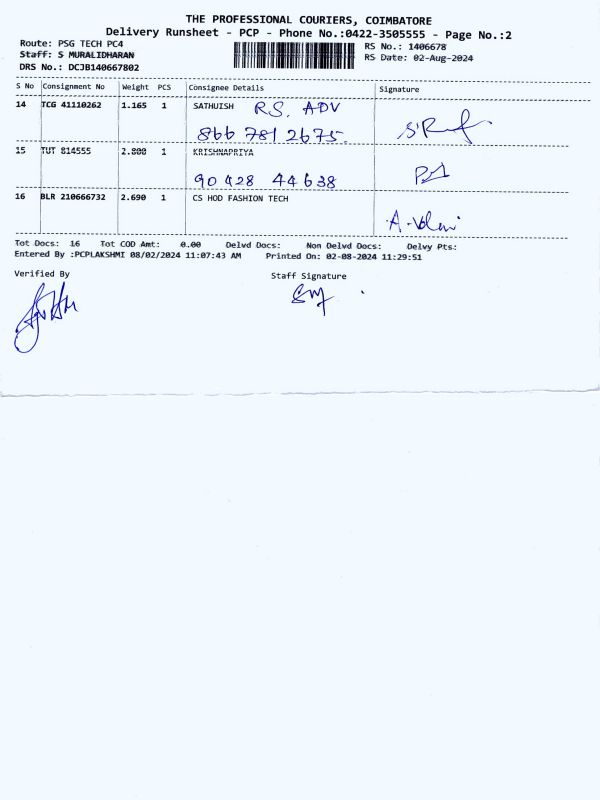 THE PROFESSIONAL COURIERS, COIMBATORE
Delivery Runsheet - PCP - Phone No.:0422-3505555 - Page No.:2
Route: PSG TECH PC4 RS No.: 1406678
Staff: S MURALIDHARAN RS Date: 02-Aug-2024
DRS No.: DCJB140667802
S No Consignment No Weight PCS Consignee Details Signature
14 TCG 41110262 1.165 1 SATHUISH RS. ADV
866 781 2675.
15 TUT 814555 2.800 1 KRISHNAPRIYA
90 428 44638
16 BLR 210666732 2.690 1 CS HOD FASHION TECH
Tot Docs: 16 Tot COD Amt: 0.00 Delvd Docs: Non Delvd Docs: Delvy Pts:
Entered By :PCPLAKSHMI 08/02/2024 11:07:43 AM Printed On: 02-08-2024 11:29:51
Verified By Staff Signature